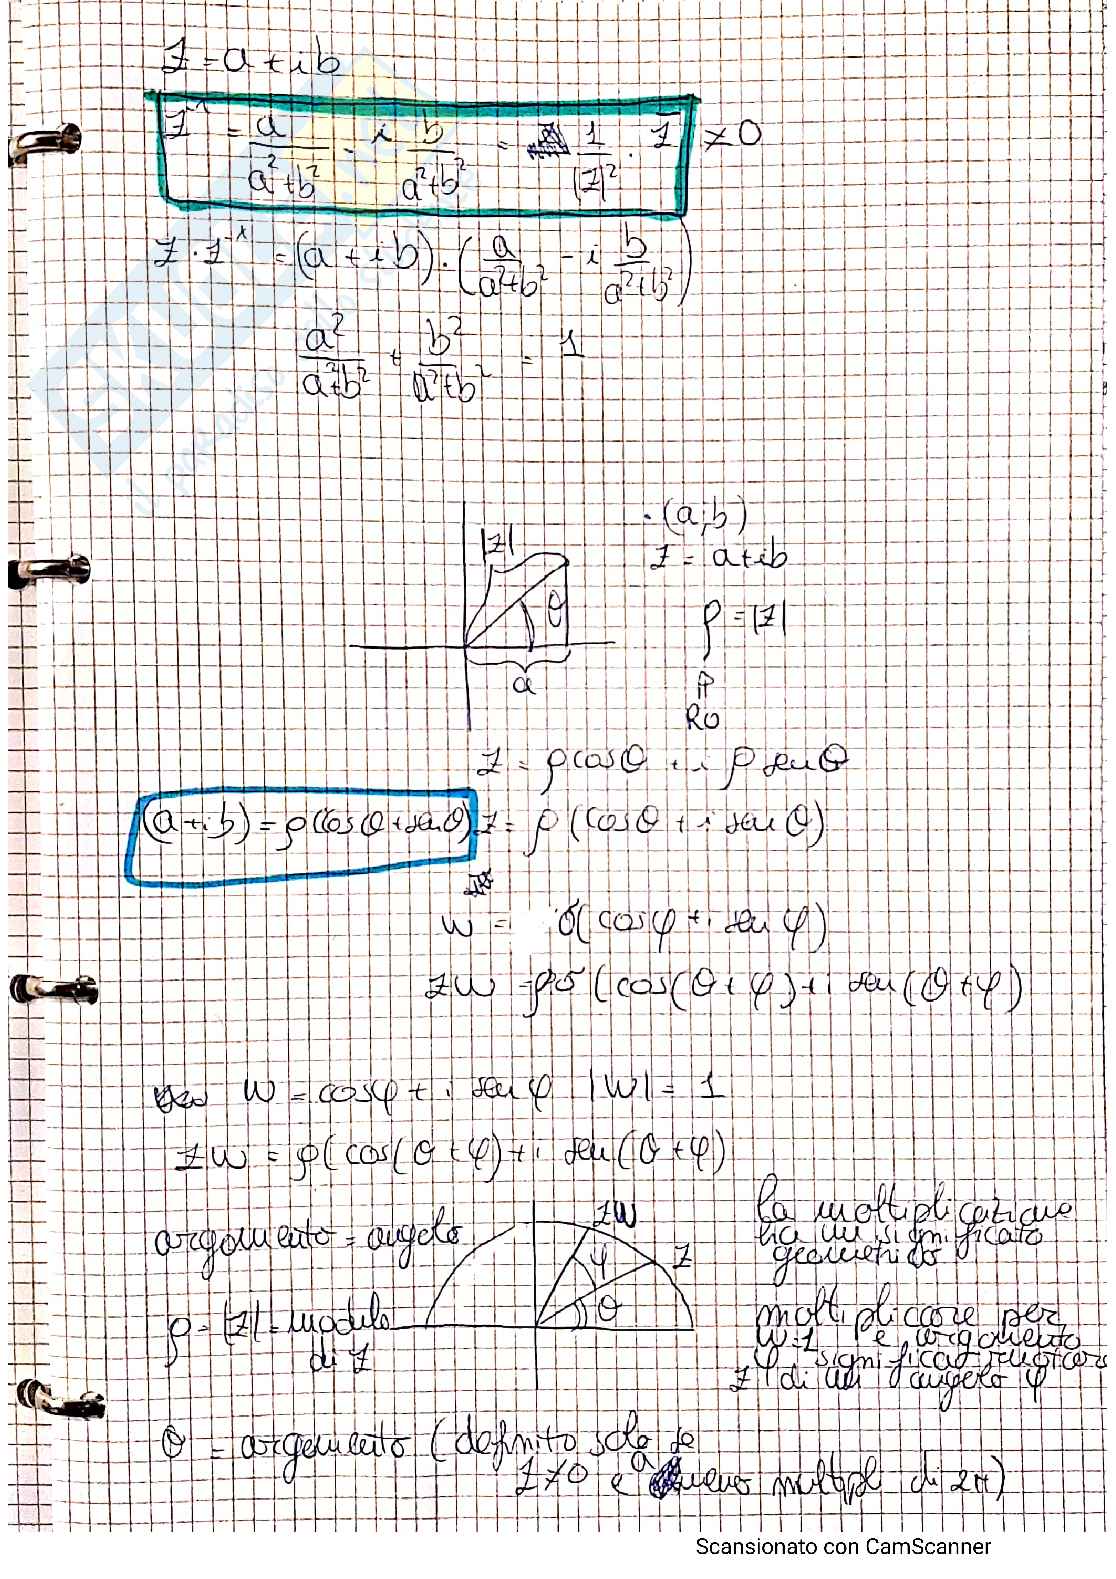 z = a + ib
z⁻¹ = a/(a²+b²) - i b/(a²+b²) = 1/|z|² · z̅ ≠ 0
z · z⁻¹ = (a + ib) · (a/(a²+b²) - i b/(a²+b²))
a²/(a²+b²) + b²/(a²+b²) = 1
· (a;b)
|z|
z = a+ib
θ
ρ = |z|
a
RO
z = ρcosθ + i ρ senθ
(a+ib) = ρ(cosθ+senθ) z = ρ (cosθ + i sen θ)
w = σ(cosφ + i sen φ)
zw = ρσ (cos(θ+φ)+i sen(θ+φ)
w = cosφ + i sen φ |w| = 1
zw = ρ(cos(θ+φ)+i sen(θ+φ)
zw
la moltiplicazione
argomento = angolo
ha un significato
z
geometrico
φ
θ
ρ = |z| = modulo
di z
moltiplicare per
w=1 e argomento
φ significa ruotare
z di un angolo φ
θ = argomento (definito solo se
z≠0 e a meno multipli di 2π)
Scansionato con CamScanner